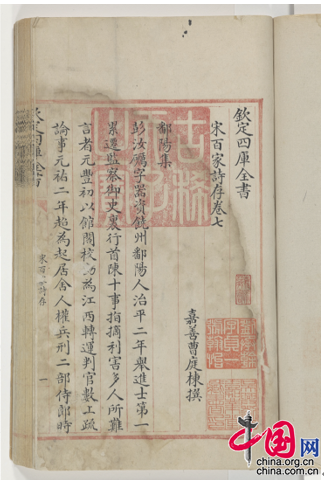 欽定四庫全書
宋百家詩存卷七
嘉善曹庭棟撰
鄱陽集
彭汝礪字器資饒州鄱陽人治平二年舉進士第一
累遷監察御史裏行首陳十事指摘利害多人所難
言者元豐初以館閣校勘為江西轉運判官數上疏
論事元祐二年起為起居舍人權兵刑二部侍郎時
欽定四庫全書
宋百家詩存
一
中国网
china.org.cn
china.com.cn